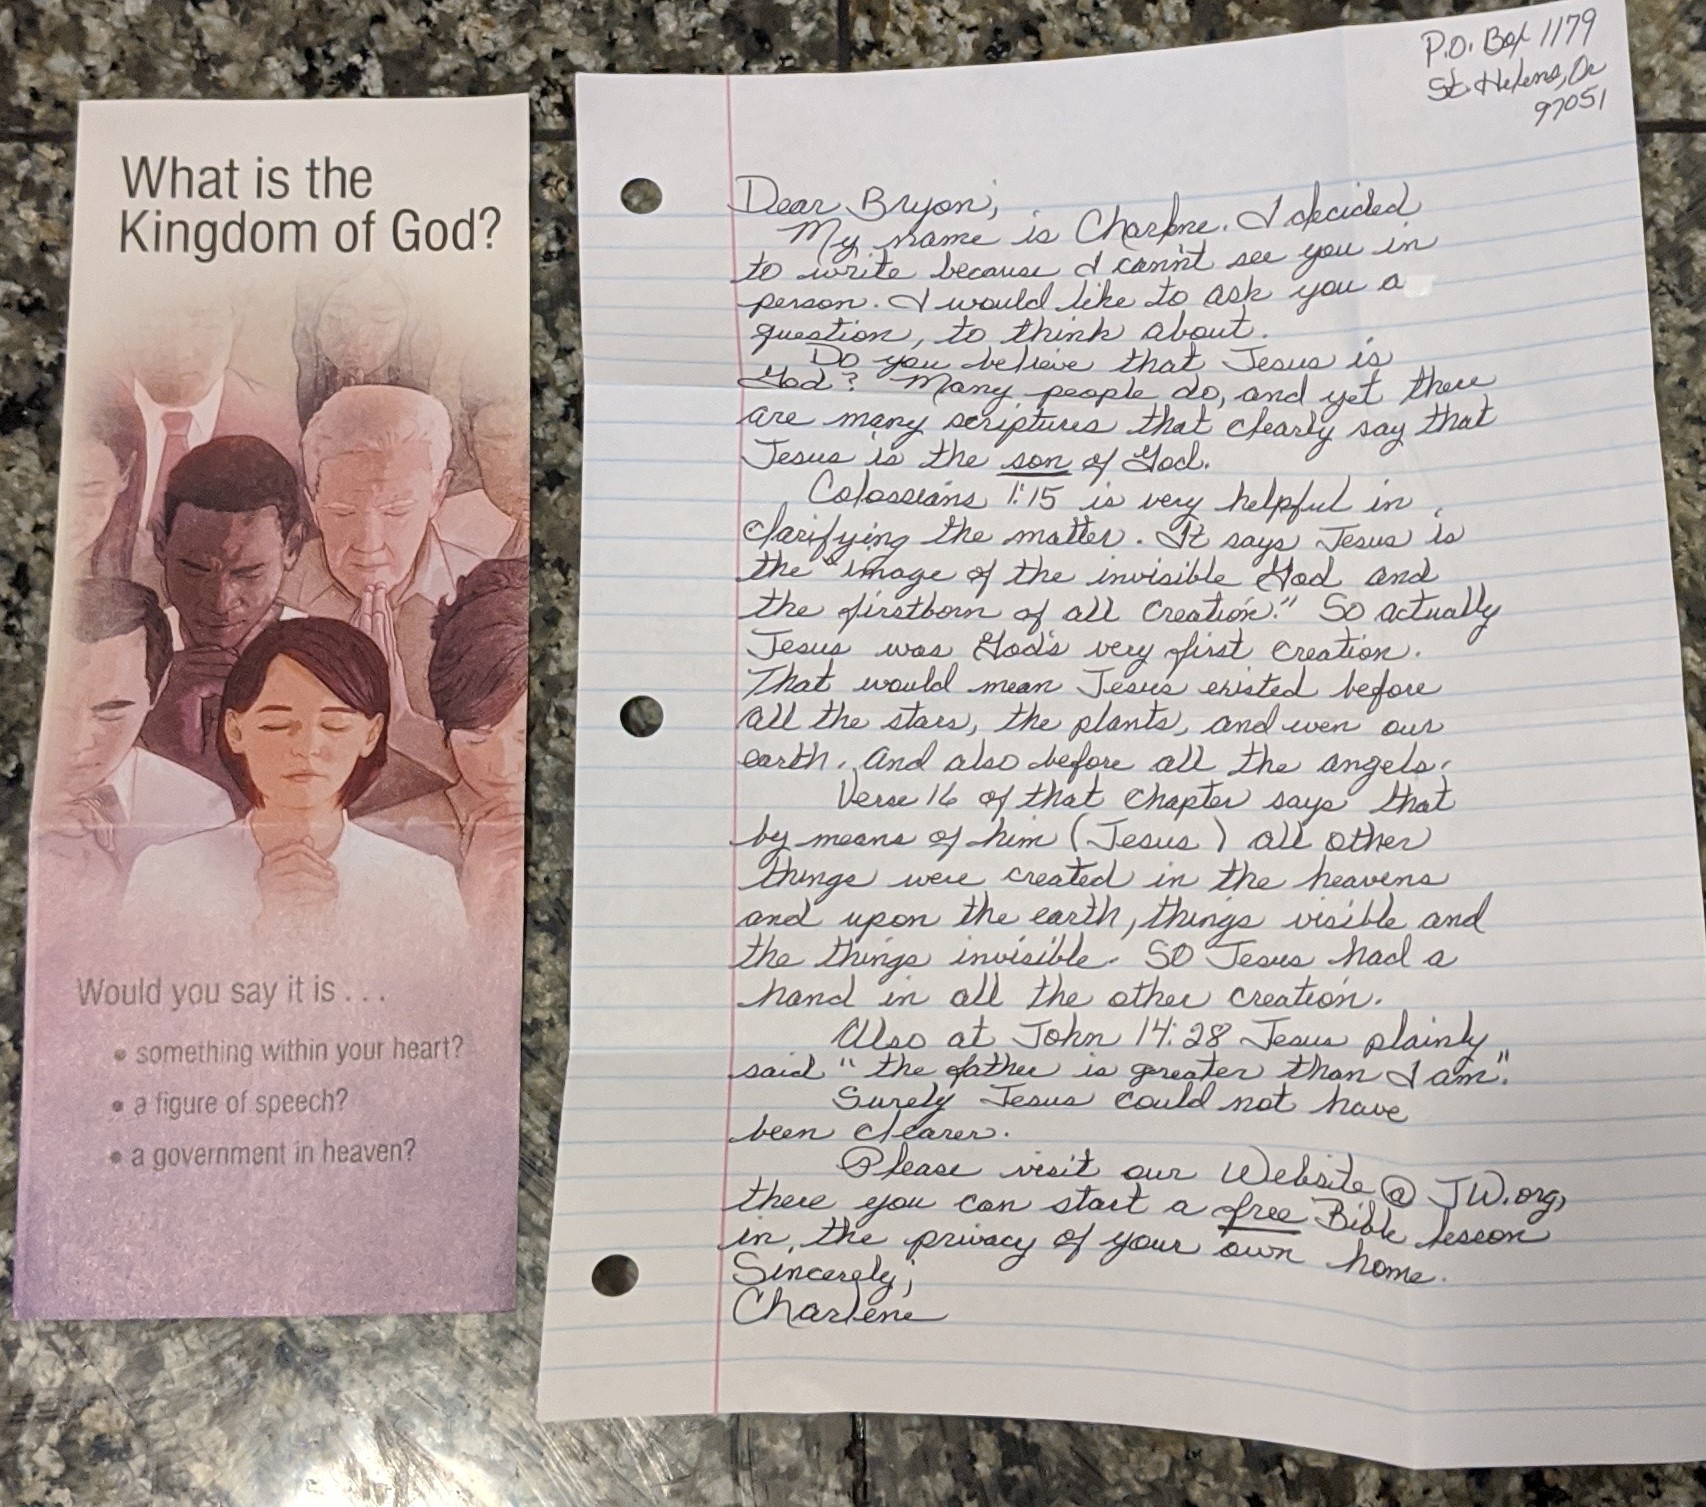 What is the
Kingdom of God?
Would you say it is . . .
• something within your heart?
• a figure of speech?
• a government in heaven?
P.O. Box 1179
St. Helens, Or
97051
Dear Bryon,
My name is Charlene. I decided
to write because I cann't see you in
person. I would like to ask you a
question, to think about.
Do you believe that Jesus is
God? Many people do, and yet there
are many scriptures that clearly say that
Jesus is the son of God.
Colossians 1:15 is very helpful in
clarifying the matter. It says Jesus is
the "image of the invisible God and
the firstborn of all creation." So actually
Jesus was God's very first creation.
That would mean Jesus existed before
all the stars, the plants, and even our
earth. And also before all the angels.
Verse 16 of that chapter says that
by means of him (Jesus) all other
things were created in the heavens
and upon the earth, things visible and
the things invisible. SO Jesus had a
hand in all the other creation.
Also at John 14:28 Jesus plainly
said "the father is greater than I am".
Surely Jesus could not have
been clearer.
Please visit our Website @ JW.org,
there you can start a free Bible lesson
in the privacy of your own home.
Sincerely,
Charlene